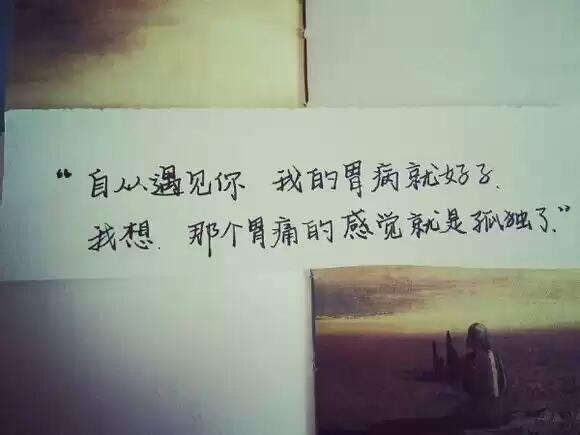 “自从遇见你 我的胃病就好了.
我想.那个胃痛的感觉就是孤独了.”